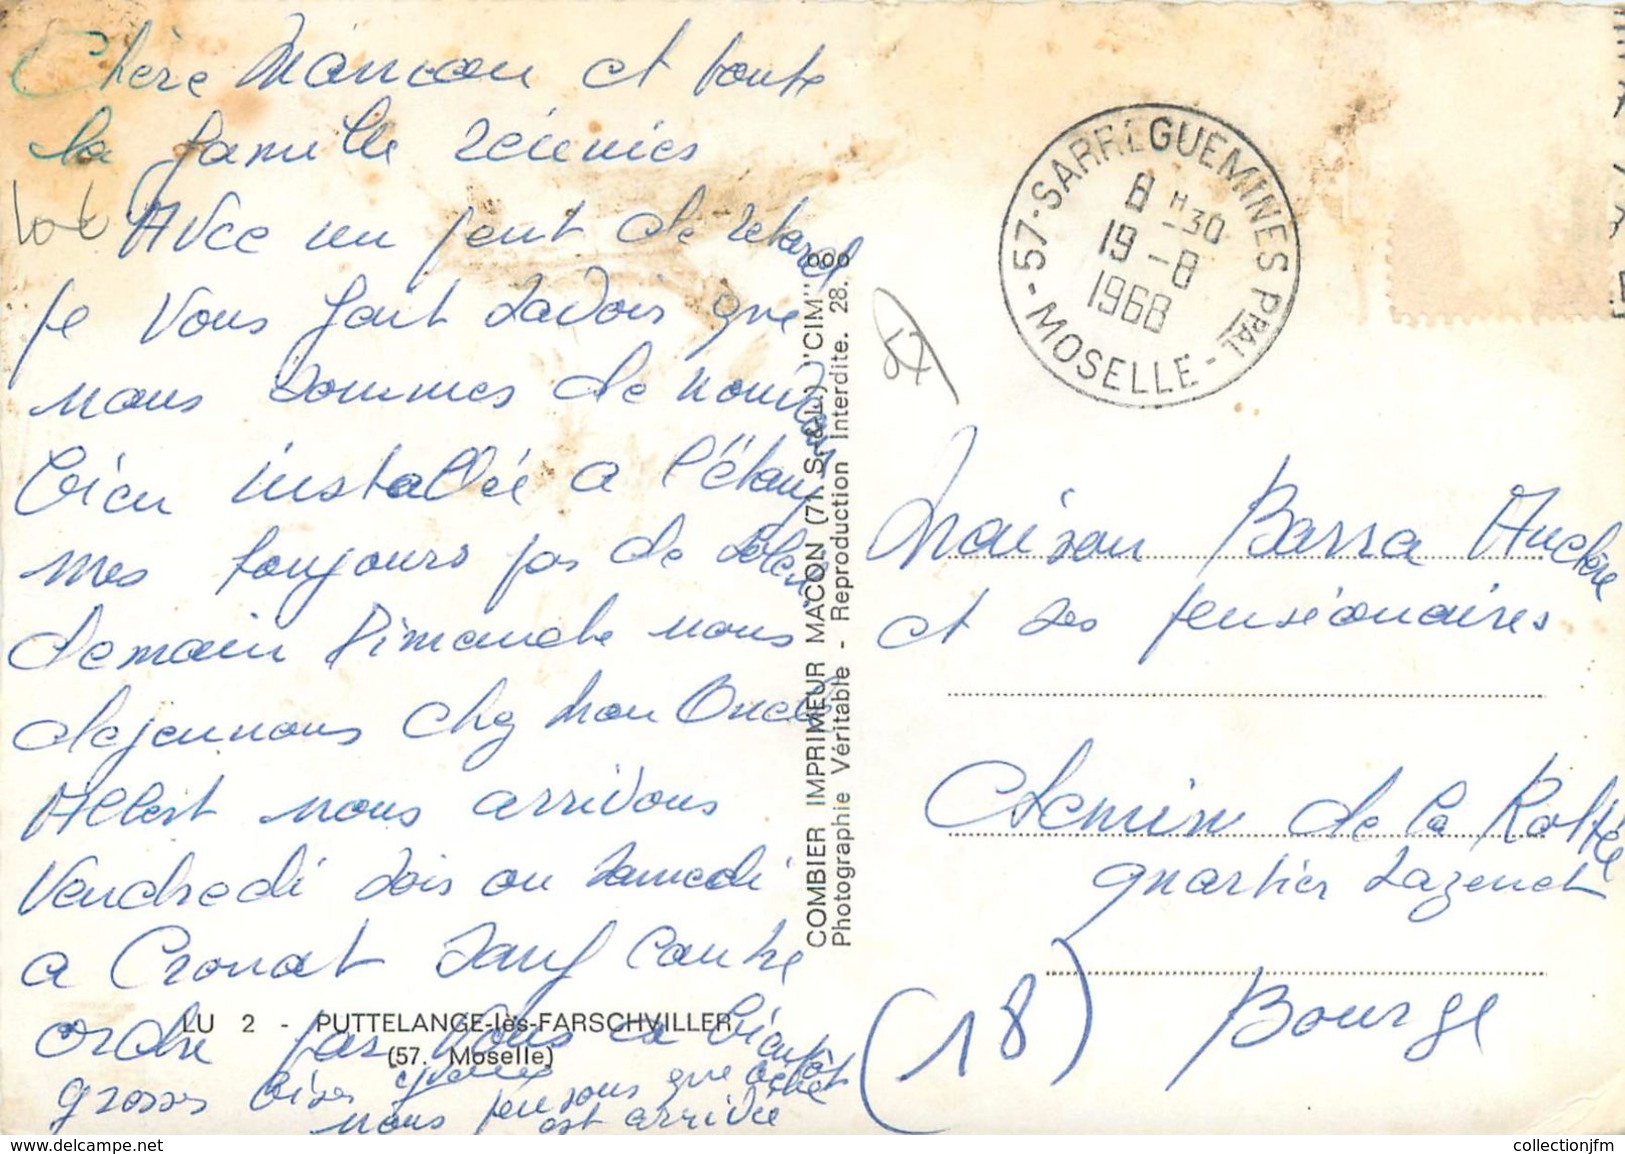 Chère Maman et toute
la famille réunies
Avec un peut de retard
je vous fait savois que
nous sommes de nouveau
bien installée a l'étang
mes toujours pas de soleil
demain Dimanche nous
dejeunons chez mon Oncle
Albert nous arrivons
Vendredi sois ou samedi
a Cronat sauf contre
ordre par vous a bientôt
grosses bises
nous pensons que
est arrivée
LU 2 - PUTTELANGE-lès-FARSCHVILLER
(57. Moselle)
COMBIER IMPRIMEUR MACON (71. S.-&-L.) "CIM"
Photographie Véritable - Reproduction Interdite. 28.000
57
57 - SARREGUEMINES PPAL - MOSELLE -
8 H 30
19 -8
1968
Maison Barra
et ses penséonaires
Chemin de la
quartier Lazenet
(18) Bourge
collectionjfm